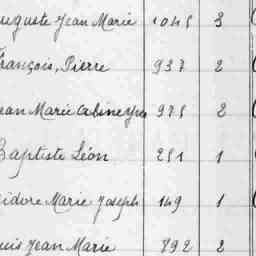 uguste Jean Marie 1045 3
François, Pierre 937 2
ean Marie 975 2
Baptiste Léon 251 1
sidore Marie Joseph 149 1
ouis Jean Marie 892 2